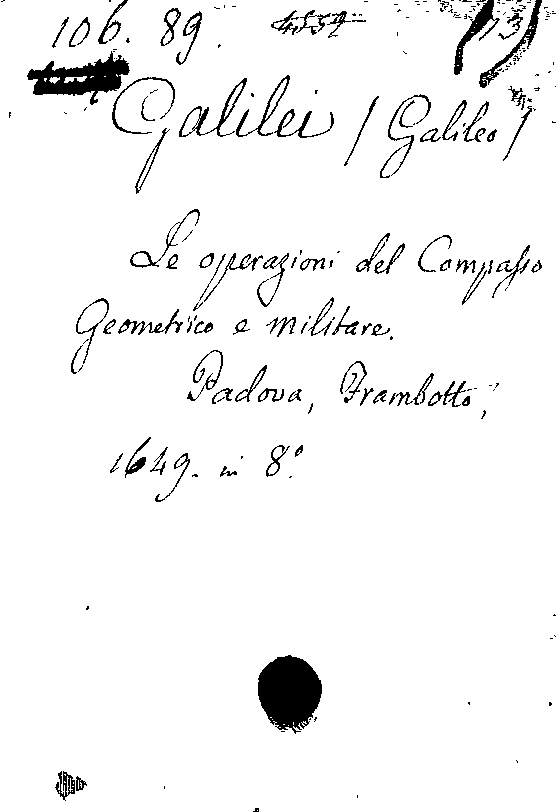 106. 89. 4559 (13)
Galilei / Galileo /
Le operazioni del Compasso
Geometrico e militare.
Padova, Frambotto,
1649. in 8°.